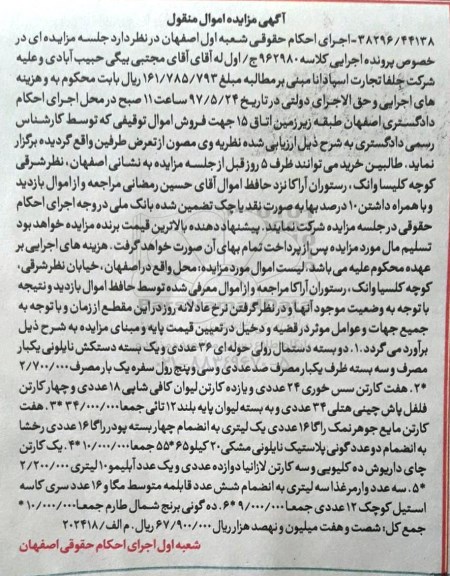 آگهی مزایده اموال منقول
۳۸۲۹۶/۴۴۱۳۸-اجرای احکام حقوقی شعبه اول اصفهان در نظر دارد جلسه مزایده ای در
خصوص پرونده اجرایی کلاسه ۹۶۲۹۸۰ ج/ اول له آقای آقای مجتبی بیگی حبیب آبادی و علیه
شرکت جلفا تجارت اسپادانا مبنی بر مطالبه مبلغ ۱۶۱/۷۸۵/۷۹۳ ریال بابت محکوم به و هزینه
های اجرایی و حق الاجرای دولتی در تاریخ ۹۷/۵/۲۴ ساعت ۱۱ صبح در محل اجرای احکام
دادگستری اصفهان طبقه زیرزمین اتاق ۱۵ جهت فروش اموال توقیفی که توسط کارشناس
رسمی دادگستری به شرح ذیل ارزیابی شده نظریه وی مصون از تعرض طرفین واقع گردیده برگزار
نماید . طالبین خرید می توانند ظرف ۵ روز قبل از جلسه مزایده به نشانی اصفهان ، نظر شرقی
کوچه کلیسا وانک ، رستوران آراکا نزد حافظ اموال آقای حسین رمضانی مراجعه و از اموال بازدید
و با همراه داشتن ۱۰ درصد بها به صورت نقد یا چک تضمین شده بانک ملی در وجه اجرای احکام
حقوقی در جلسه مزایده شرکت نمایند . پیشنهاد دهنده بالاترین قیمت برنده مزایده خواهد بود
تسلیم مال مورد مزایده پس از پرداخت تمام بهای آن صورت خواهد گرفت . هزینه های اجرایی بر
عهده محکوم علیه می باشد . لیست اموال مورد مزایده: محل واقع در اصفهان ، خیابان نظر شرقی،
کوچه کلسیا وانک ، رستوران آراکا مراجعه و از اموال معرفی شده توسط حافظ اموال بازدید و نتیجه
با توجه به وضعیت موجود آنها و در نظر گرفتن نرخ عادلانه روز در این مقطع از زمان و با توجه به
جمیع جهات و عوامل موثر در قضیه و دخیل در تعیین قیمت پایه و مبنای مزایده به شرح ذیل
برآورد می گردد .۱. دو بسته دستمال رولی حوله ای ۳۶ عددی و یک بسته دستکش نایلونی یکبار
مصرف و سه بسته ظرف یکبار مصرف صد عددی و سی و پنج رول سفره یک بار مصرف ۲/۷۰۰/۰۰۰
*۲. هفت کارتن سس خوری ۲۴ عددی و یازده کارتن لیوان کافی شاپی ۱۸ عددی و چهار کارتن
فلفل پاش چینی هتلی ۳۴ عددی و نه بسته لیوان پایه بلند ۱۲ تائی جمعا ۳۴/۰۰۰/۰۰۰ *۳. هفت
کارتن مایع جوهر نمک راگا ۱۶ عددی یک لیتری به انضمام چهار بسته پودر راگا ۱۶ عددی رخشا
به انضمام دو عدد گونی پلاستیک نایلونی مشکی ۲۰ کیلو ۶۵*۵۵ جمعا ۱۰/۰۰۰/۰۰۰ *۴. یک کارتن
چای داریوش ده کلیویی و سه کارتن لازانیا دوازده عددی و یک عدد آبلیمو ۱۰ لیتری ۲/۲۰۰/۰۰۰
*۵. سه عدد وارمر غذا سه لیتری به انضمام شش عدد قابلمه متوسط مگا و ۱۶ سری کاسه
استیل کوچک ۱۲ عددی جمعا ۹/۰۰۰/۰۰۰ *۶. ده گونی برنج شمال طارم جمعا ۱۰/۰۰۰/۰۰۰ *
جمع کل: شصت و هفت میلیون و نهصد هزار ریال ۶۷/۹۰۰/۰۰۰ ریال . م الف/ ۲۰۲۴۱۸
شعبه اول اجرای احکام حقوقی اصفهان